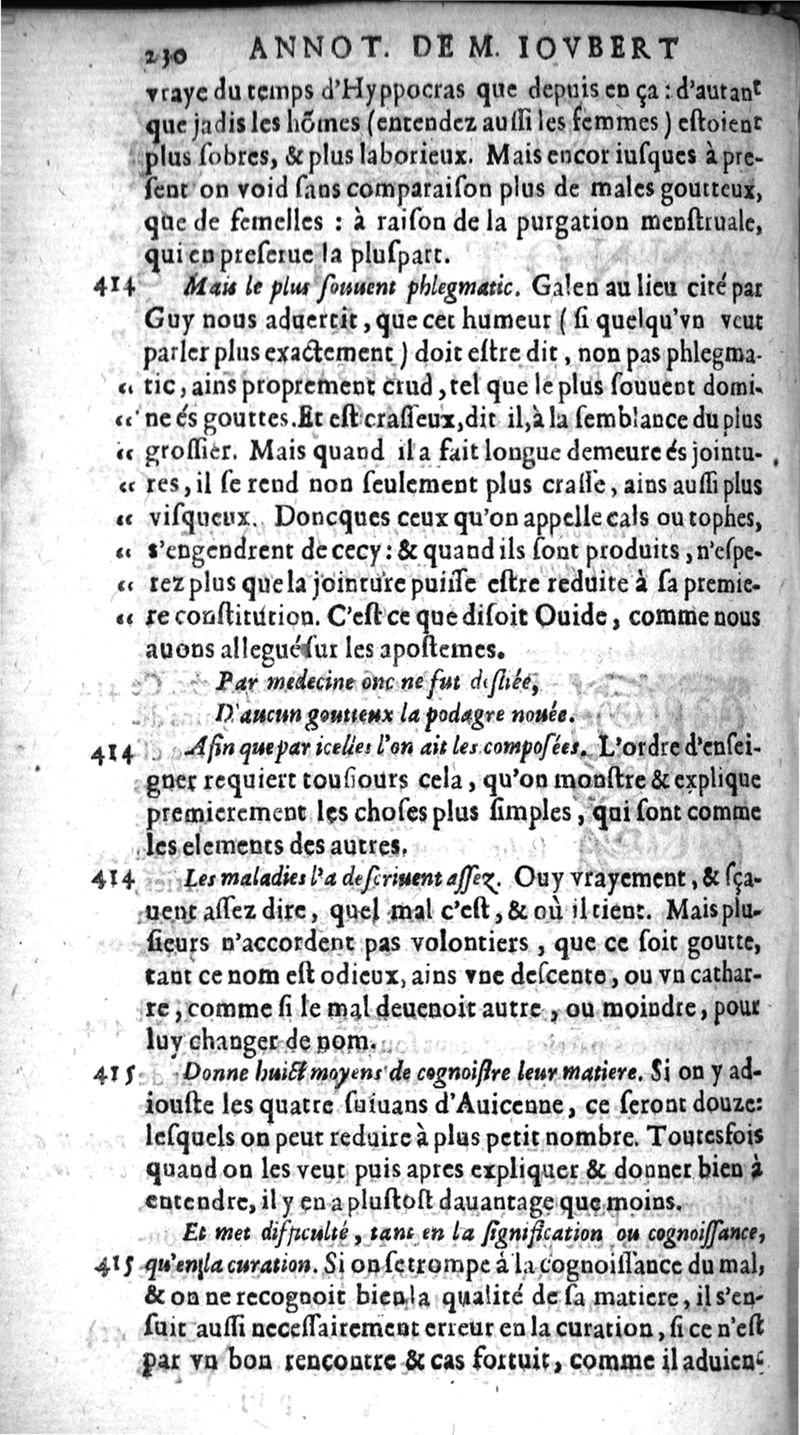 230 ANNOT. DE M. IOVBERT
vraye du temps d'Hyppocras que depuis en ça : d'autant
que jadis les hõmes (entendez auſſi les femmes) eſtoient
plus ſobres, & plus laborieux. Mais encor iuſques à pre-
ſent on void ſans comparaiſon plus de males goutteux,
que de femelles : à raiſon de la purgation menſtruale,
qui en preſerue la pluſpart.
414 Mais le plus ſouuent phlegmatic. Galen au lieu cité par
Guy nous aduertit, que cet humeur (ſi quelqu'vn veut
parler plus exactement) doit eſtre dit, non pas phlegma-
“ tic, ains proprement crud, tel que le plus ſouuent domi-
“ ne és gouttes. Et eſt craſſeux, dit il, à la ſemblance du plus
“ groſſier. Mais quand il a fait longue demeure és jointu-
“ res, il ſe rend non ſeulement plus craſſe, ains auſſi plus
“ viſqueux. Doncques ceux qu'on appelle cals ou tophes,
“ s'engendrent de cecy : & quand ils ſont produits, n'eſpe-
“ rez plus que la jointure puiſſe eſtre reduite à ſa premie-
“ re conſtitution. C'eſt ce que diſoit Ouide, comme nous
auons allegué ſur les apoſtemes.
Par medecine onc ne fut deſliée,
D'aucun goutteux la podagre nouée.
414 Afin que par icelles l'on ait les compoſées. L'ordre d'enſei-
gner requiert touſiours cela, qu'on monſtre & explique
premierement les choſes plus ſimples, qui ſont comme
les elements des autres.
414 Les maladies l'a deſcriuent aſſez. Ouy vrayement, & ſça-
uent aſſez dire, quel mal c'eſt, & où il tient. Mais plu-
ſieurs n'accordent pas volontiers, que ce ſoit goutte,
tant ce nom eſt odieux, ains vne deſcente, ou vn cathar-
re, comme ſi le mal deuenoit autre, ou moindre, pour
luy changer de nom.
415 Donne huict moyens de cognoiſtre leur matiere. Si on y ad-
iouſte les quatre ſuiuans d'Auicenne, ce ſeront douze:
leſquels on peut reduire à plus petit nombre. Toutesfois
quand on les veut puis apres expliquer & donner bien à
entendre, il y en a pluſtoſt dauantage que moins.
Et met difficulté, tant en la ſignification ou cognoiſſance,
415 qu'en la curation. Si on ſe trompe à la cognoiſſance du mal,
& on ne recognoit bien la qualité de ſa matiere, il s'en-
ſuit auſſi neceſſairement erreur en la curation, ſi ce n'eſt
par vn bon rencontre & cas fortuit, comme il aduient